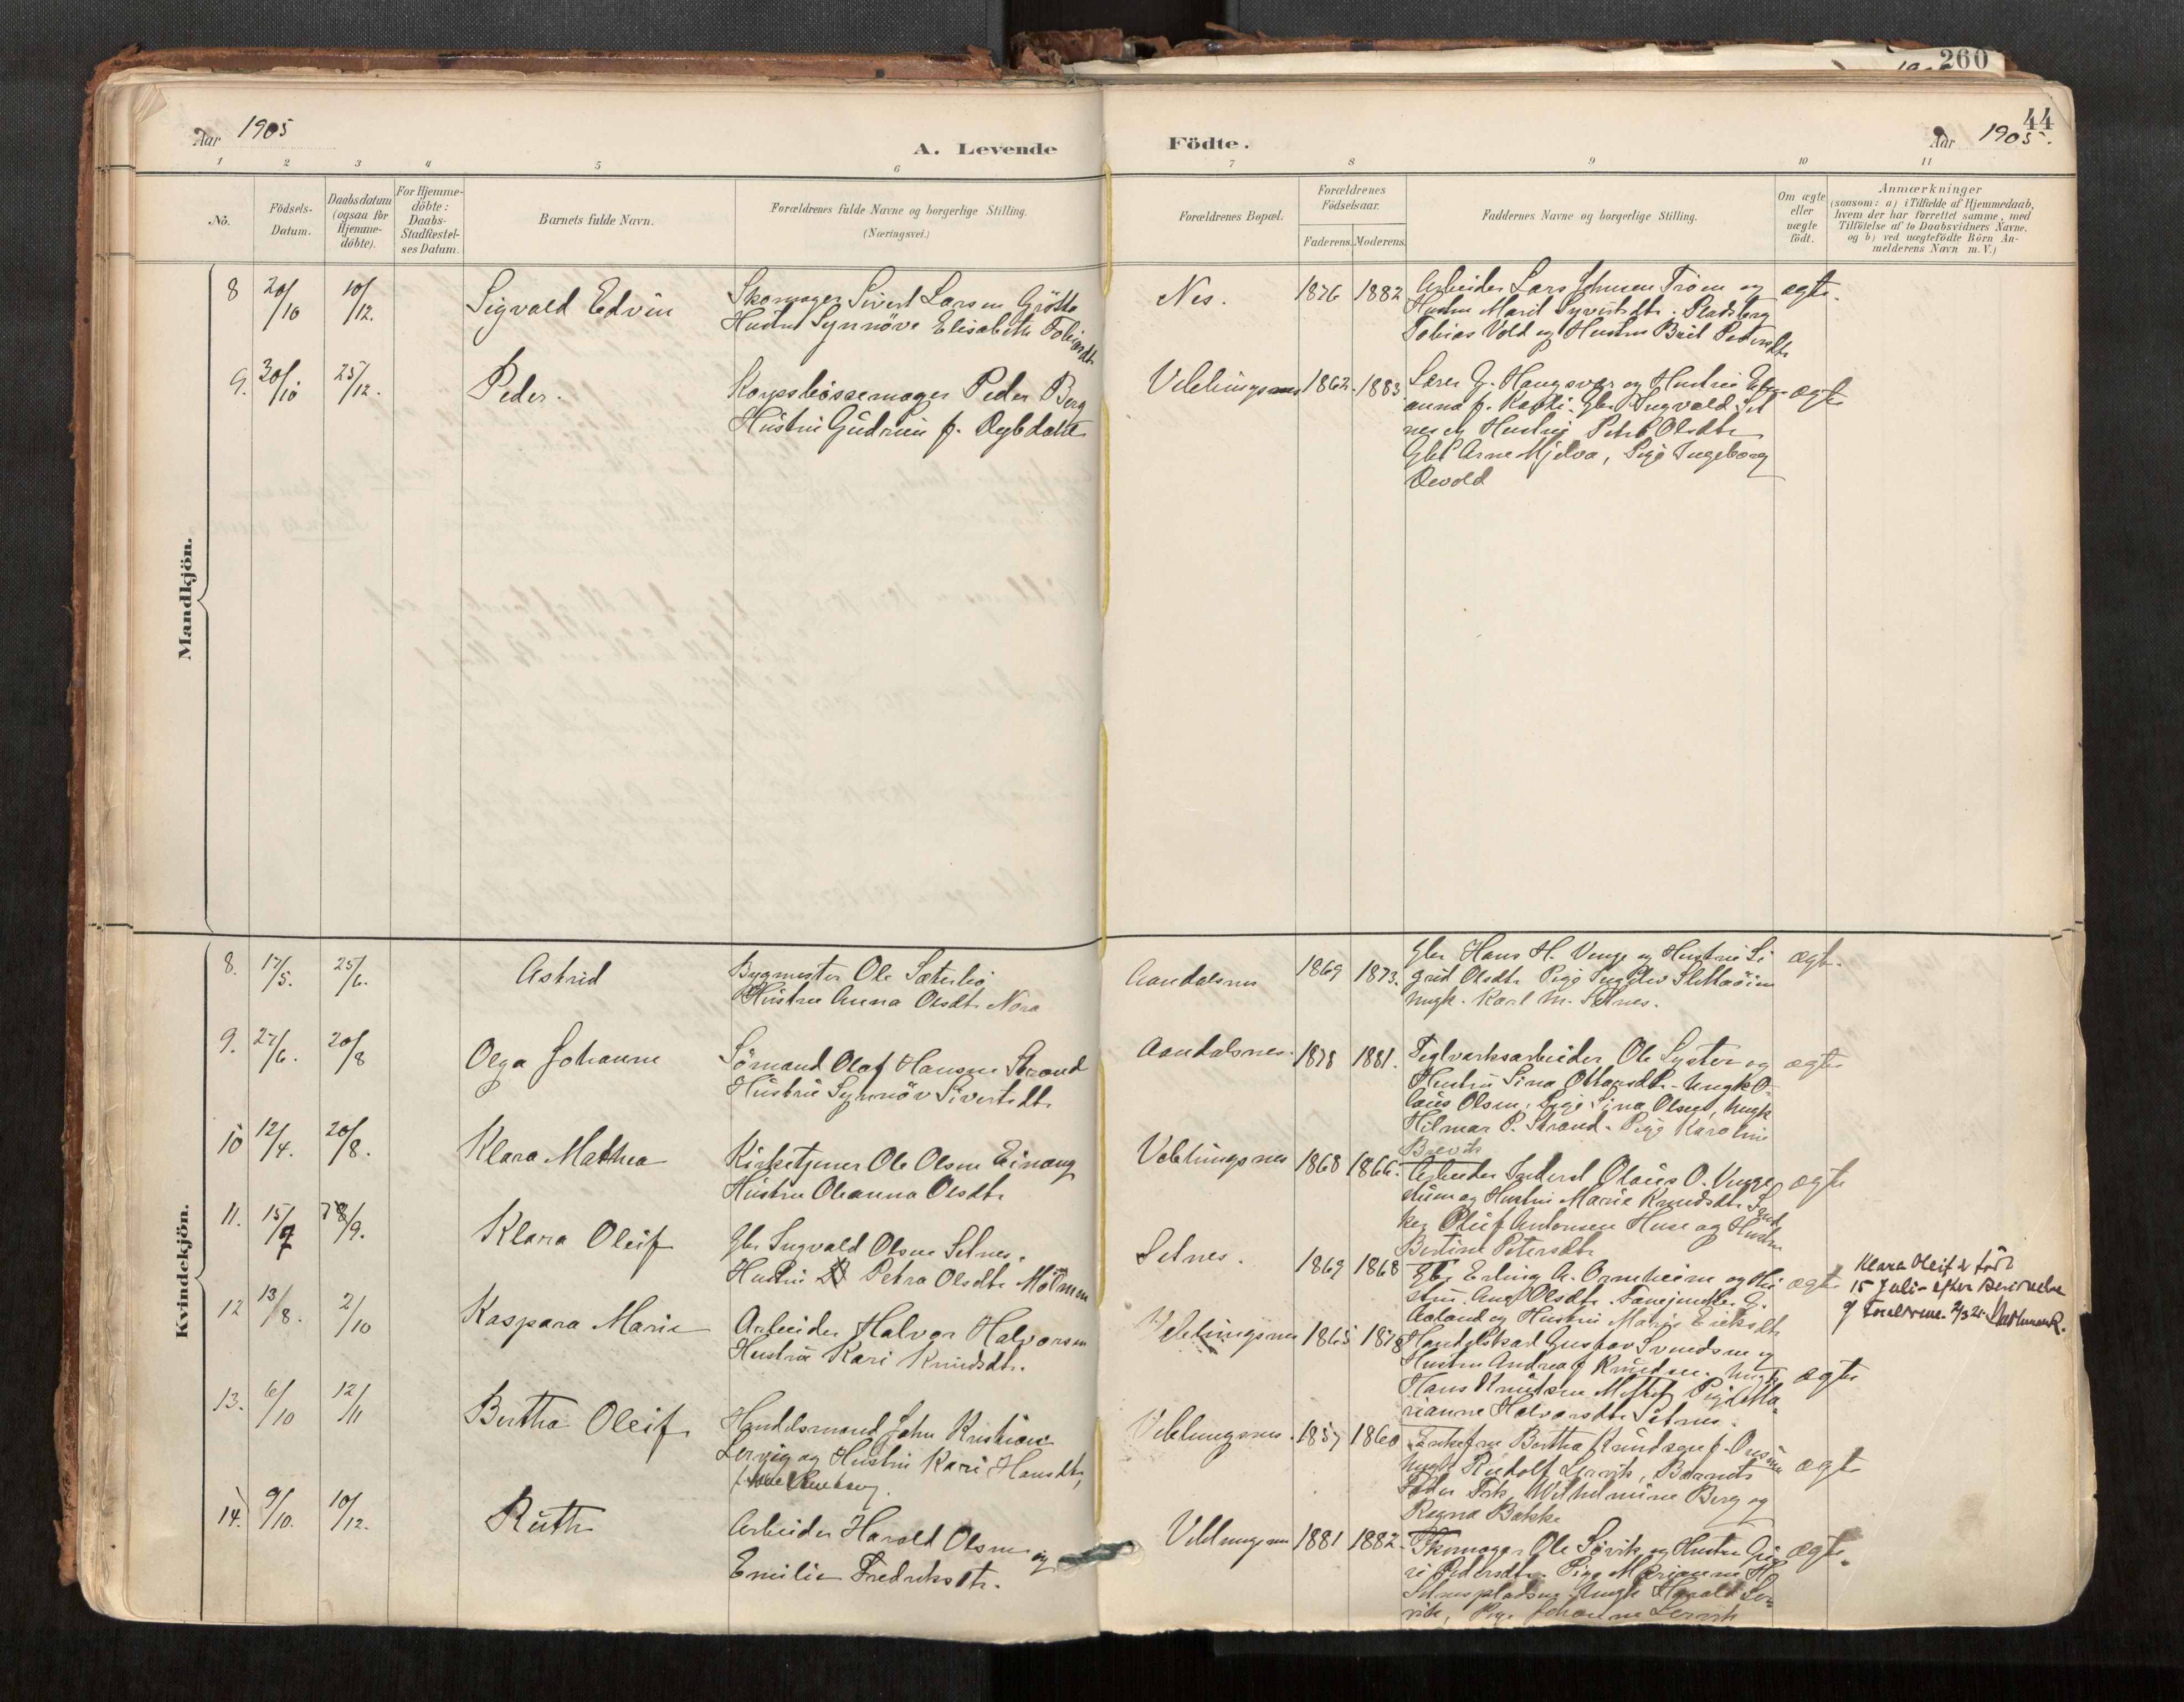 260
44
Aar 1905
A. Levende
Födte.
Aar 1905.
1 2 3 4 5 6 7 8 9 10 11
No.
Födsels-
Datum.
Daabsdatum
(ogsaa for
Hjemme-
döbte).
For Hjemme-
döbte:
Daabs-
Stadfæstel-
ses Datum.
Barnets fulde Navn.
Forældrenes fulde Navne og borgerlige Stilling.
(Næringsvei.)
Forældrenes Bopæl.
Forældrenes
Födselsaar.
Faderens. Moderens.
Faddernes Navne og borgerlige Stilling.
Om ægte
eller
uægte
födt.
Anmærkninger
(saasom: a) i Tilfælde af Hjemmedaab,
hvem der har forrettet samme, med
Tilföielse af to Daabsvidners Navne,
og b) ved uægtefödte Börn An-
melderens Navn m. V.)
Mandkjön.
8 20/10 10/12. Sigvald Edvin
Skomager Sivert Larsen Grötte
Hustru Synnöve Elisabeth Tobiasdt.
Nes. 1876 1882
Arbeider Lars Johnsen Troen og
Hustru Marit Syvertsdtr. Pladsbrg
Tobias Vold og Hustru Brit Petersdtr
ægte.
9. 30/10 25/12. Peder.
Korpsbössemager Peder Berg
Hustru Gudrun f. Dybdahl
Veblungsnes 1862. 1883.
Lærer G. Haugsvær og Hustru
anna f. Gbr Ingvald Set
nes og Hustru Petra Olsdtr
Gbr Arne Mjelva, Pige Ingeborg
Devold
ægte
Kvindekjön.
8. 17/5. 25/6. Astrid
Bygmester Ole Sæterbö
Hustru Anna Olsdtr Nora
Aandalsnes 1869 1873.
Gbr Hans H. Venge og Hustru Si
grid Olsdtr Pige Slettaöien
Ungk. Karl M. Setnes.
ægte.
9. 27/6. 20/8 Olga Johanne
Sömand Olaf Hansen Strand
Hustru Synnöv Sivertsdtr
Aandalsnes. 1878 1881.
Teglværksarbeider Ole Syster og
Hustru Sina Ottarsdtr. Ungk O-
laus Olsen, Pige Sina Olsen, Ungk
Hilmar P. Strand. Pige Karoline
Brevik
ægte
10 12/4. 20/8. Klara Mathea
Kirketjener Ole Olsen Einang
Hustru Oleanna Olsdtr
Veblungsnes 1868 1866.
Arbeider Olaus O. Venge
og Hustru Marie Knudsdtr
Oluf Antonsen Huse og Hustru
Bertine Petersdtr
ægte
11. 15/7 /9. Klara Oleif
Gbr Ingvald Olsen Setnes.
Hustru Petra Olsdtr Mölmen
Setnes. 1869 1868
Gbr Erling A. Ormheim og Hu
stru Ane Olsdtr. Fanejunker G.
Aaland og Hustru Marie Eriksdtr
ægte
Klara Oleif er född
15 Juli - efter Bevidnelse
af Forældrene. 2/3 21.
12 13/8. 2/10 Kaspara Marie
Arbeider Halvor Halvorsen
Hustru Kari Knudsdtr.
Veblungsnes 1865 1878
Gustav Svendsen og
Hustru Andrea f Knudsen. Ungk
Hans Knudsen Pige Ma-
rianne Halvorsdtr Setnes.
ægte
13. 6/10 12/11 Bertha Oleif
Handelsmand John Kristian
Lervig og Hustru Kari Hansdtr,
Veblungsnes. 1857 1860
Enkefru Bertha Knudsen f.
Ungk Rudolf Lervik, Barnets
Fader Frk. Wilhelmine Berg og
Ragna Bakke
ægte
14. 9/10. 10/12. Ruth
Arbeider Harald Olsen og
Emilie Fredriksdtr.
Veblungsnes 1881 1882.
Skomager Ole Sövik og Hustru Gu
ri Pedersdtr. Pige Marianne H
Setnespladsen. Ungk Harald Ler-
vik, Pige Johanne Lervik
ægte.